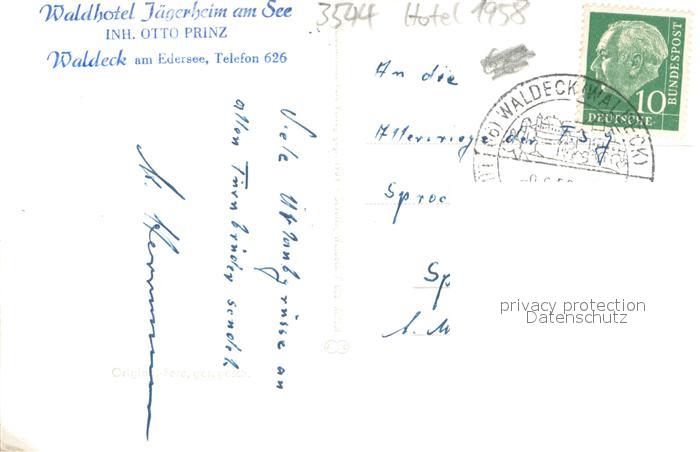 Waldhotel Jägerheim am See
INH. OTTO PRINZ
Waldeck am Edersee, Telefon 626
3544 Hotel 1958
Viele Urlaubsgrüsse an
allen Turnbrüder sendet
An die
Altersriege der
Sproc
Sp
BUNDESPOST
10
DEUTSCHE
WALDECK (WALDECK)
privacy protection
Datenschutz